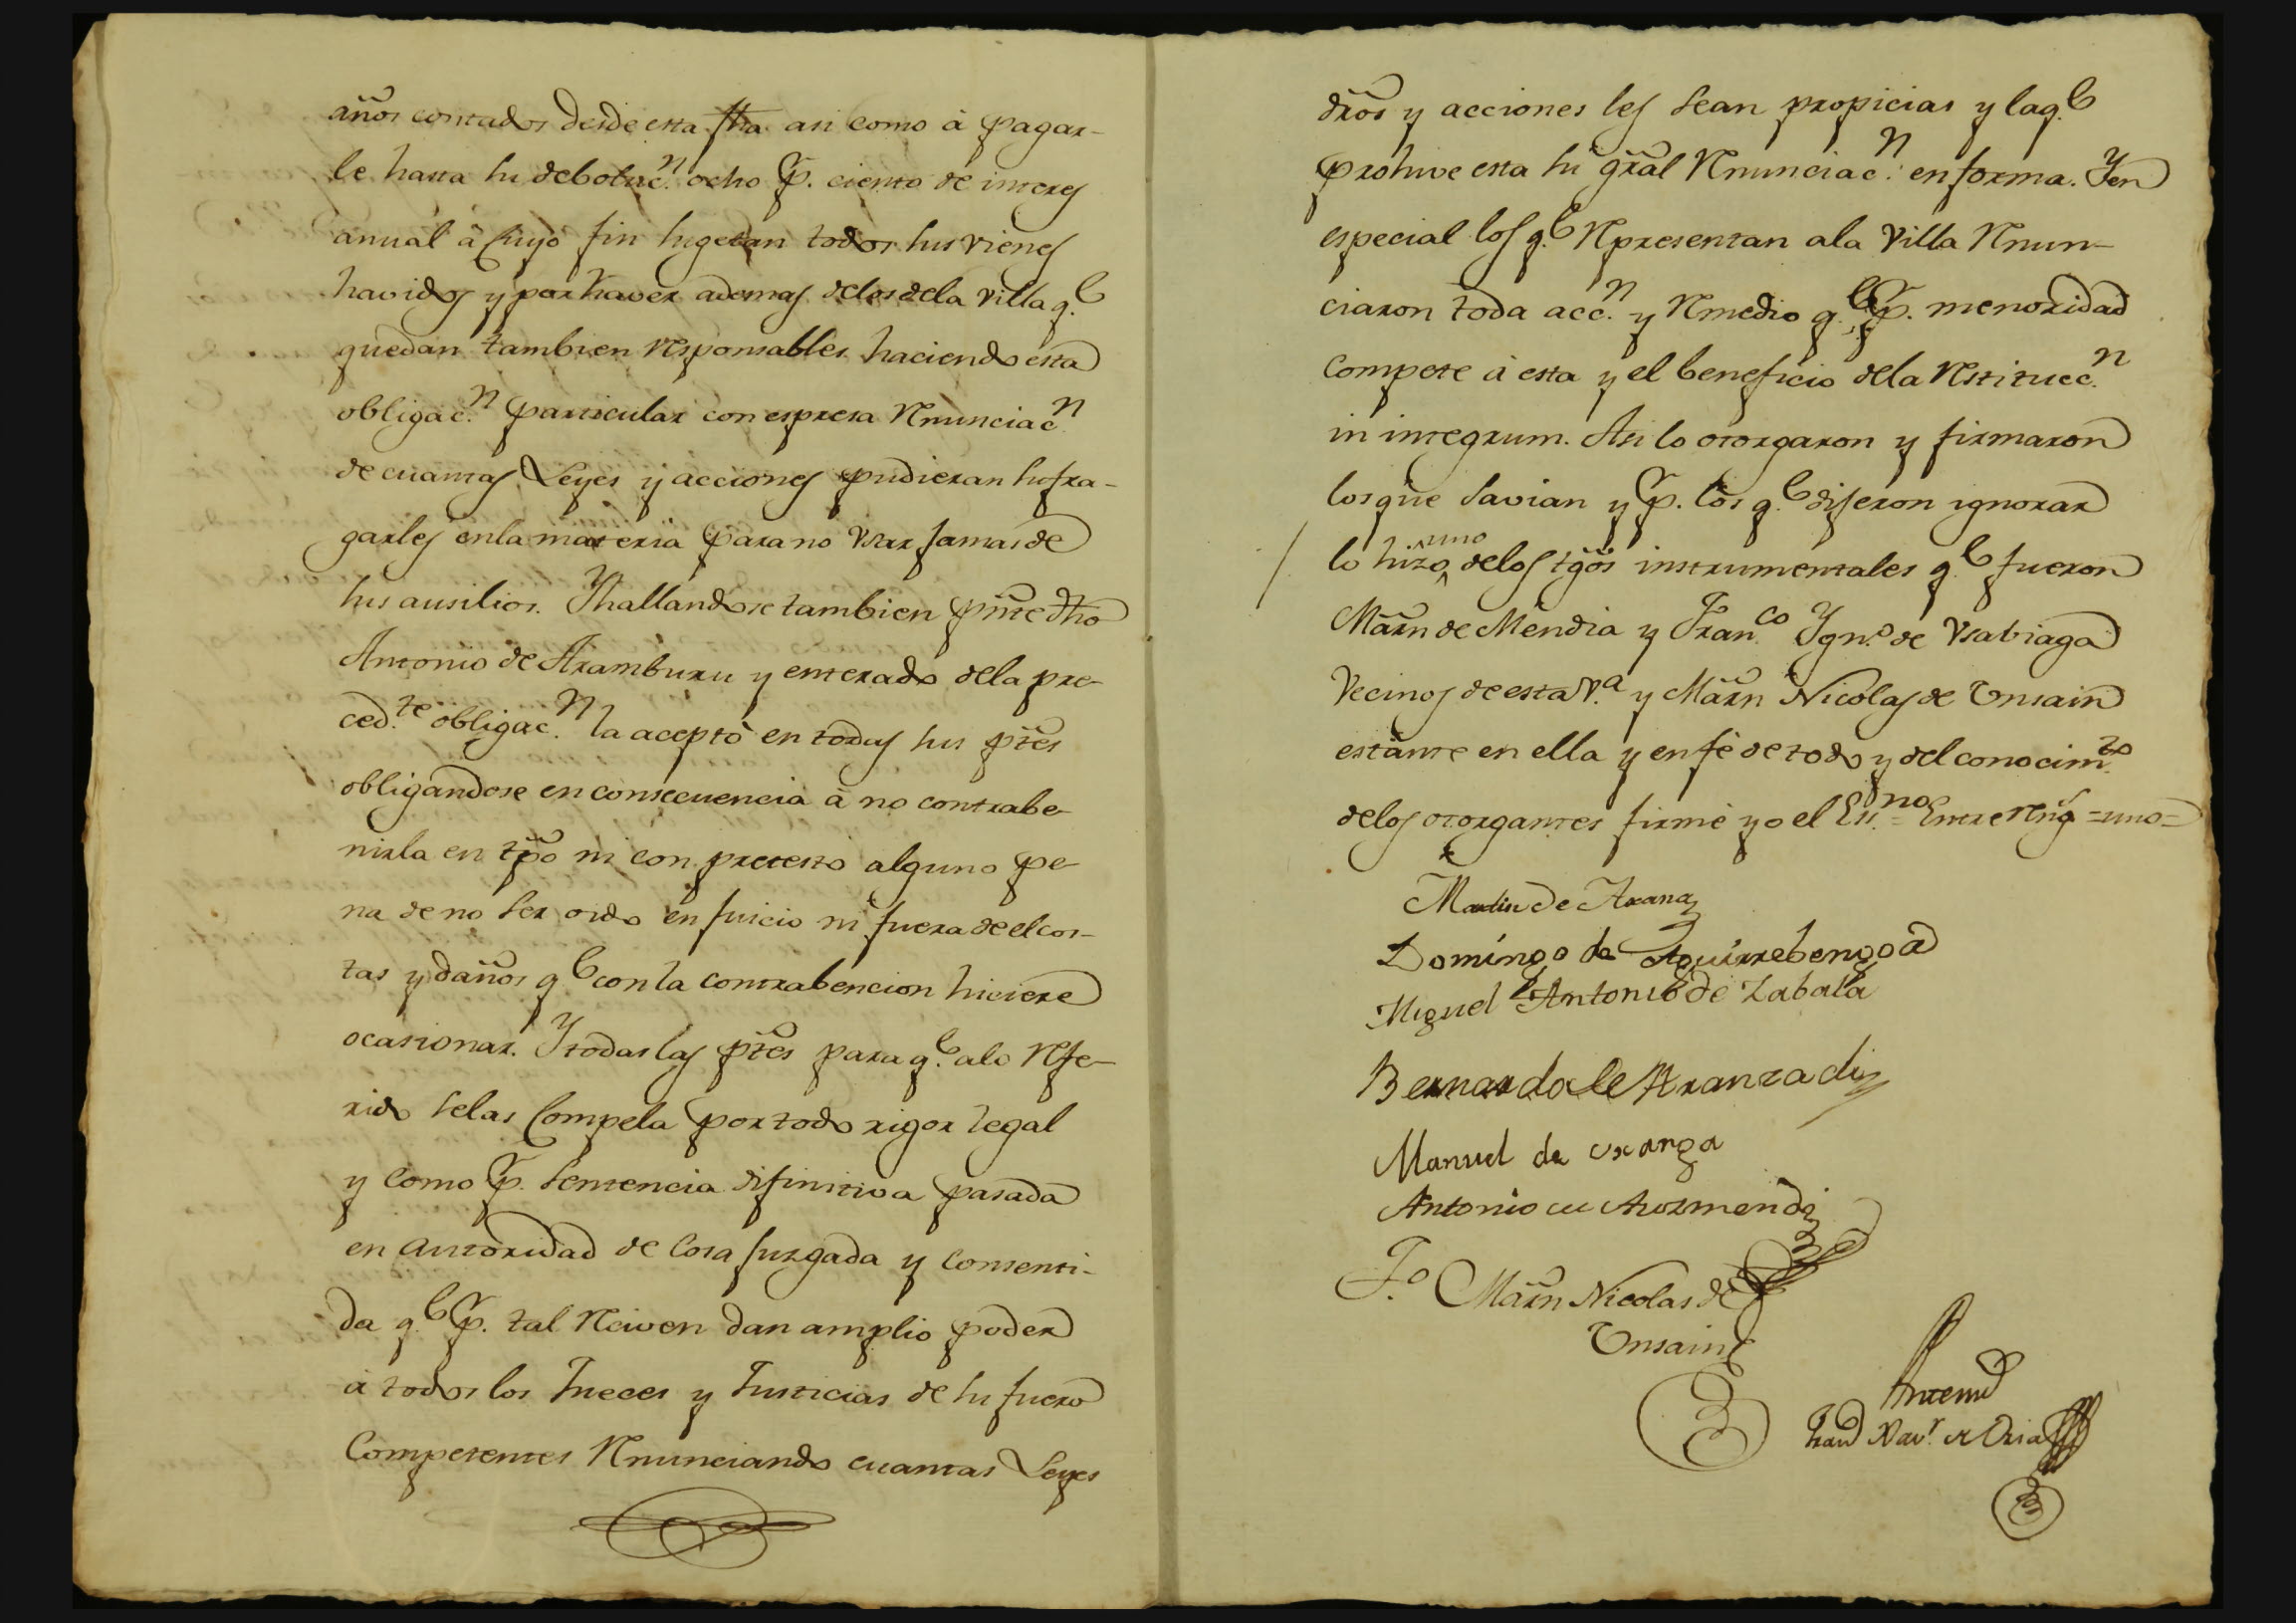 años contados desde esta fha. asi como à pagar-
le hasta su deboluc.n ocho p. ciento de interes
anual à cuyo fin sugetan todos sus vienes
havidos y por haver ademas delos dela villa q.e
quedan tambien responsables haciendo esta
obligac.n particular con espresa Renunciac.n
de cuantas Leyes y acciones pudieran sufra-
garles enla materia para no usar jamas de
sus ausilios. Y hallandose tambien pnte dho
Antonio de Aramburu y enterado dela pre-
ced.te obligac.n la aceptò en todas sus ptes
obligandose en consecuencia à no contrabe-
nirla en tpo ni con pretesto alguno pe-
na de no ser oido en juicio ni fuera de el cos-
tas y daños q.e con la contrabencion hiciere
ocasionar. Y todas las ptes para q.e alo Refe-
rido selas Compela por todo rigor legal
y como p. sentencia difinitiva pasada
en autoridad de Cosa juzgada y consenti-
da q.e p. tal Reciven dan amplio poder
à todos los Jueces y Justicias de su fuero
Competentes Renunciando cuantas Leyes
dros y acciones les sean propicias y la q.e
prohive esta su gral Renunciac.n en forma. Y en
especial los q.e Representan ala Villa Renun-
ciaron toda acc.n y Remedio q.e p. menoridad
Compete à esta y el beneficio dela Restitucc.n
in integrum. Asi lo otorgaron y firmaron
los que savian y p. los q.e dijeron ignorar
lo hizo uno delos tgos instrumentales q.e fueron
Marn de Mendia y Fran.co Ygn.o de Usabiaga
Vecinos de esta V.a y Marn Nicolas de Unsain
estante en ella y en fè de todo y del conocim.to
delos otorgantes firmè yo el Es.no = Entre Reng = uno =
Martin de Arana
Domingo de Aguirrebengoa
Miguel Antonio de Zabala
Bernardo de Aranzadi
Manuel de Uranga
Antonio de Aizmendi
T.o Marn Nicolas de
Unsain
Antemi
Fran.co Xav.r de Oria